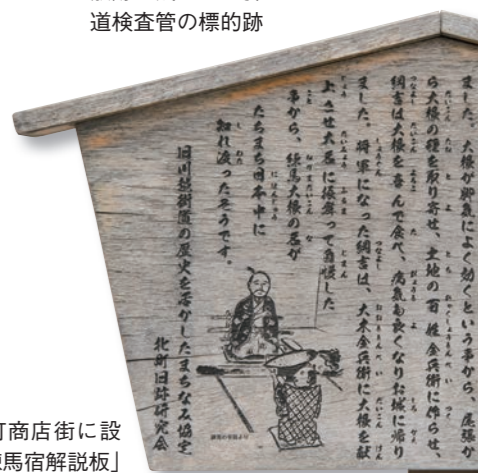 道検査管の標的跡
ました。大根が脚気によく効くという事から、尾張か
ら大根の種を取り寄せ、土地の百姓金兵衛に作らせ、
綱吉は大根を喜んで食べ、病気も良くなりお城に帰り
ました。将軍になった綱吉は、大木金兵衛に大根を献
上させ大名に振舞って自慢した
事から、練馬大根の名が
たちまち日本中に
知れ渡ったそうです。
旧川越街道の歴史を活かしたまちなみ協定
北町旧跡研究会
町商店街に設
練馬宿解説板」